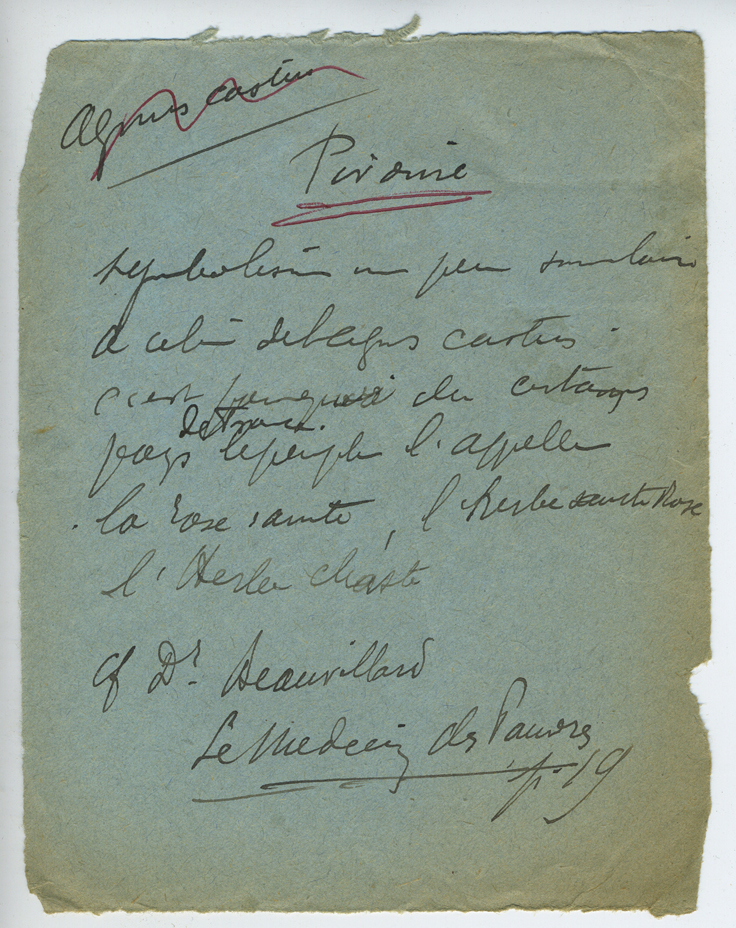 Agnus castus
Pivoine
Symbolisme un peu similaire
à celui de l'Agnus castus.
c'est pourquoi dans certains
de France.
pays le peuple l'appelle
la rose sainte, l'Herbe sainte Rose
l'Herbe chaste
cf Dr Beauvillard
Le Medecin des Pauvres
p. 19